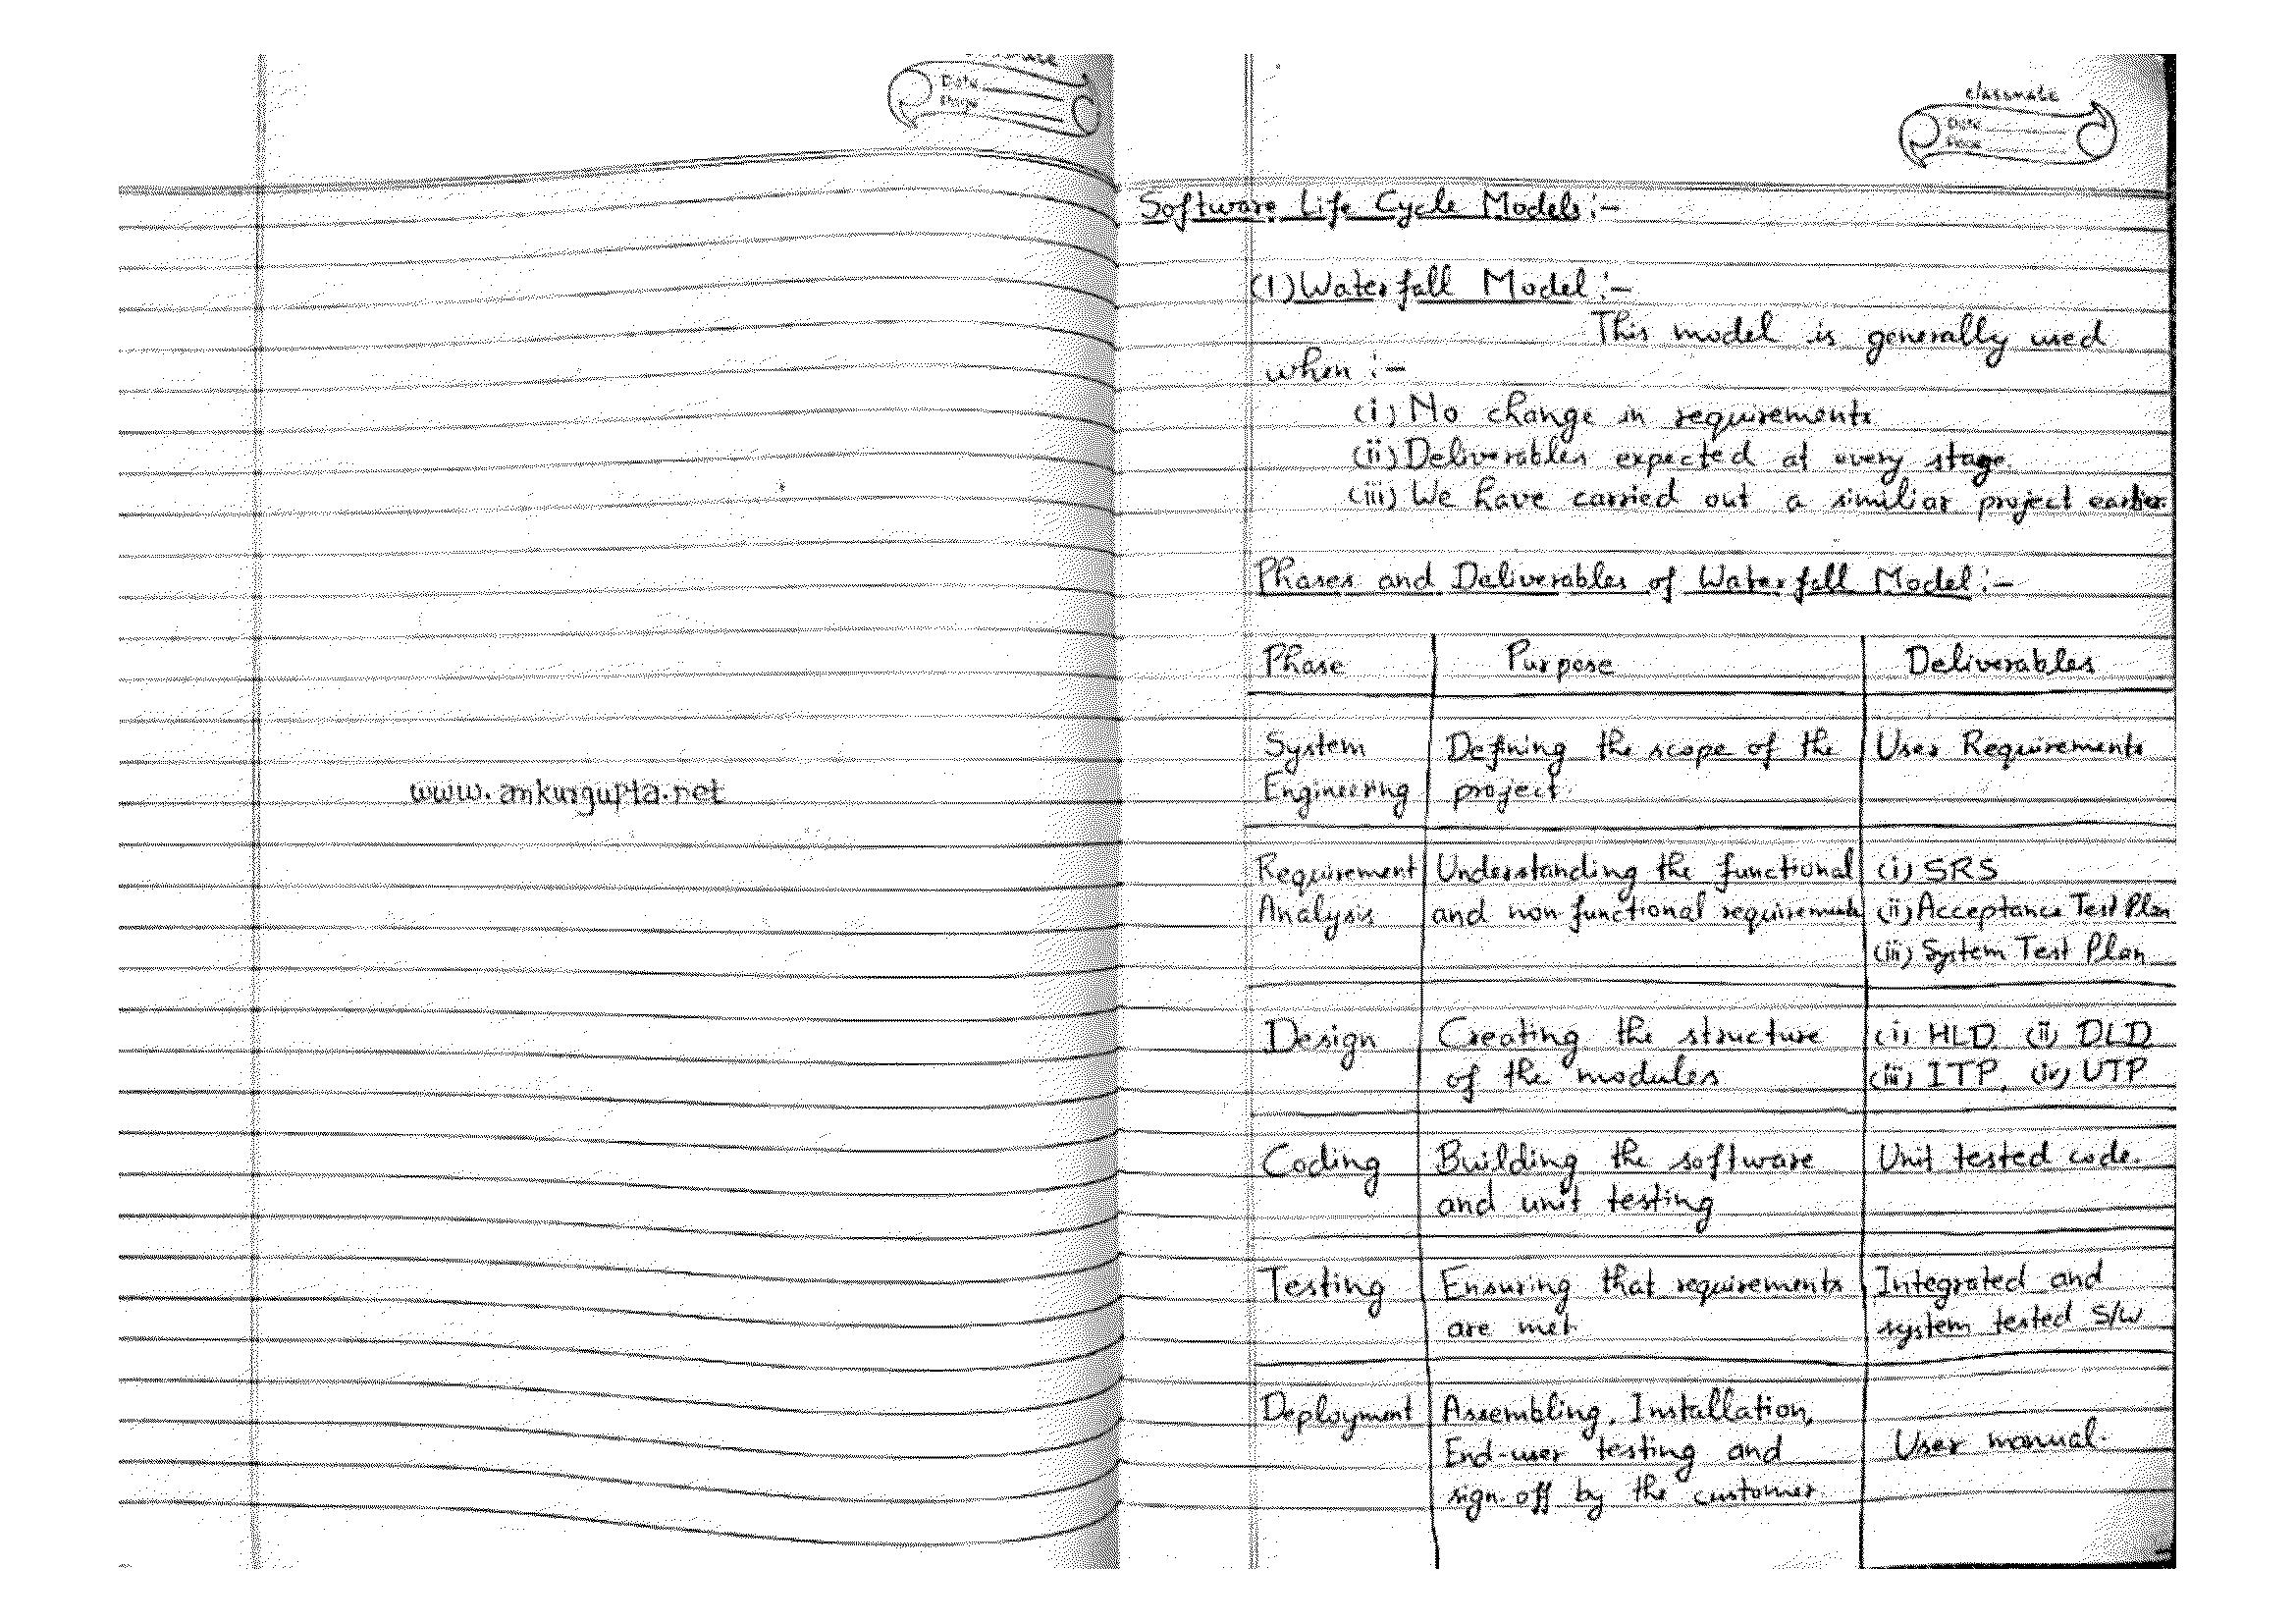 Date
Page
www.ankurgupta.net
classmate
Date
Page
Software Life Cycle Models:-
(1) Waterfall Model:-
This model is generally used
when :-
(i) No change in requirements
(ii) Deliverables expected at every stage.
(iii) We have carried out a similiar project earlier.
Phases and Deliverables of Waterfall Model:-
Phase Purpose Deliverables
System Defining the scope of the User Requirements
Engineering project.
Requirement Understanding the functional (i) SRS
Analysis and non-functional requirements (ii) Acceptance Test Plan
(iii) System Test Plan
Design Creating the structure (i) HLD (ii) DLD
of the modules (iii) ITP, (iv) UTP
Coding Building the software Unit tested code.
and unit testing
Testing Ensuring that requirements Integrated and
are met. system tested S/W
Deployment Assembling, Installation,
End-user testing and User manual.
sign-off by the customer.